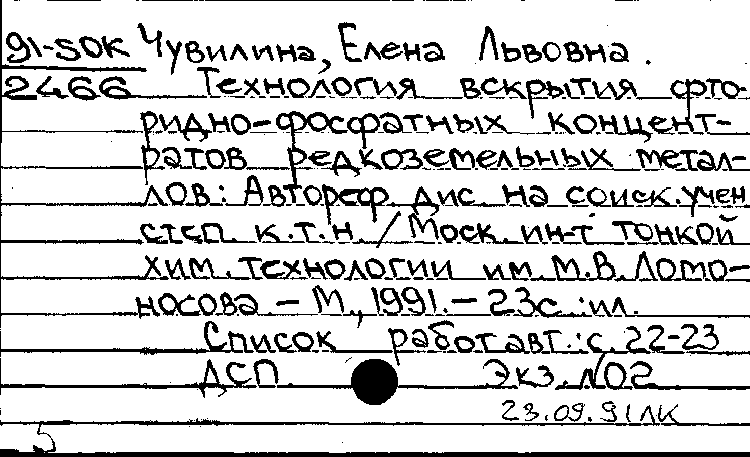 91-5ОК Чувилина, Елена Львовна.
2466 Технология вскрытия фто-
ридно-фосфатных концент-
ратов редкоземельных метал-
лов: Автореф. дис. на соиск. учен
степ. к.т.н. / Моск. ин-т тонкой
хим. технологии им. М.В. Ломо-
носова. - М., 1991. - 23с.: ил.
Список работ авт.: с. 22-23
ДСП. Экз. №02
23.09.91 ЛК
5